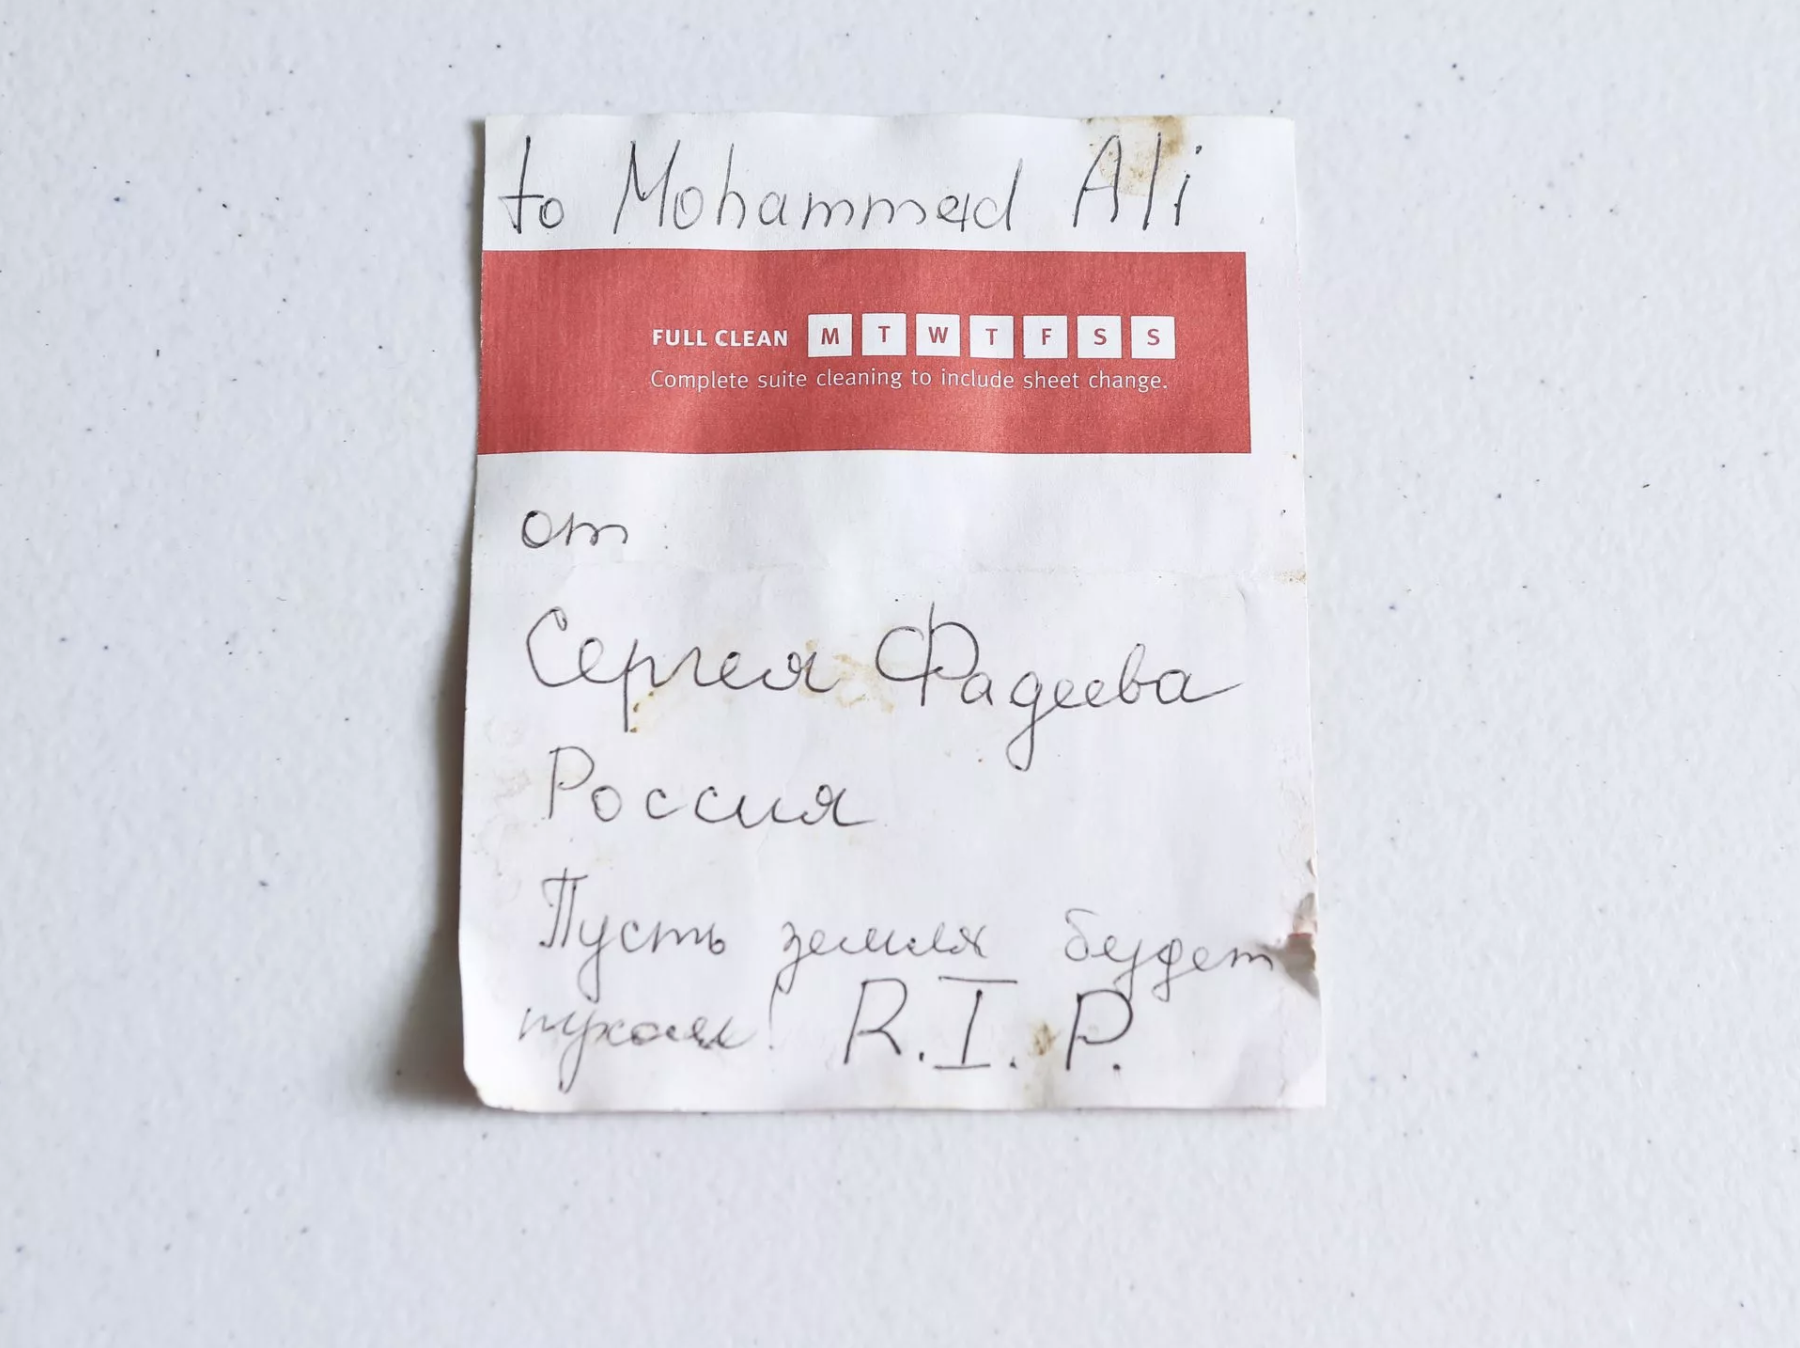 to Mohammed Ali
FULL CLEAN M T W T F S S
Complete suite cleaning to include sheet change.
от
Сергея Фадеева
Россия
Пусть земля будет
пухом! R.I.P.